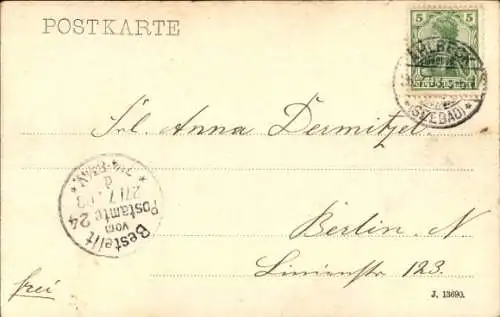 POSTKARTE
5 5
AHLBECK
(SEEBAD)
Frl. Anna Dermitzel
Bestellt
vom
Postamte 24
27/7 03
Berlin. N
Linienstr 123.
frei
J. 13690.